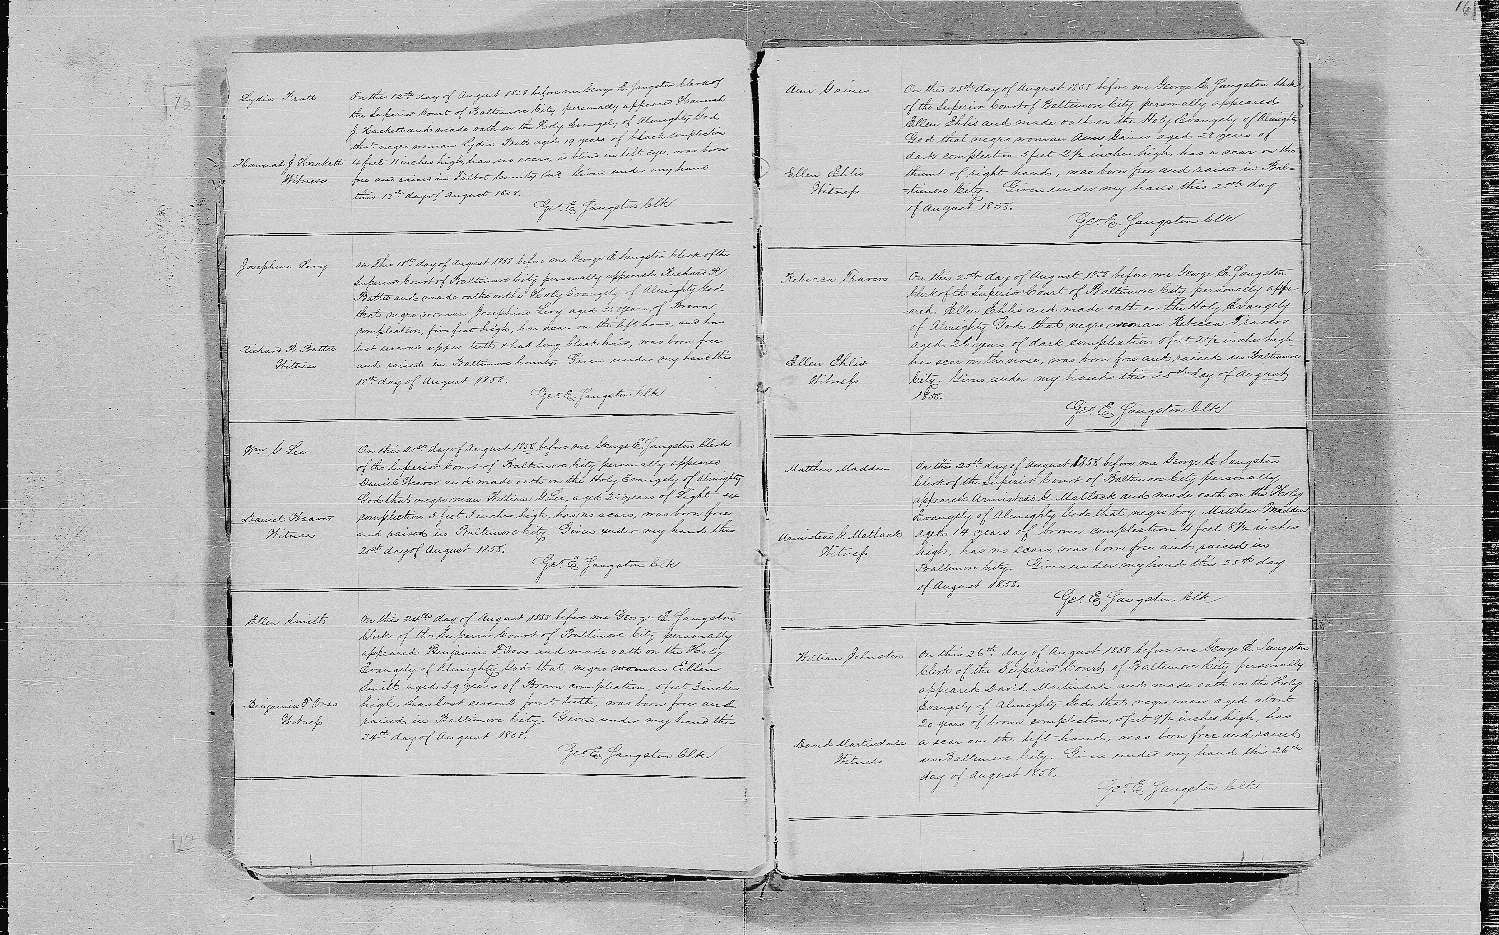 Lydia Pratt
Hannah J. Hackett
Witness
On this 12th day of August 1858 before me George E. Sangston Clerk of
the Superior Court of Baltimore City personally appeared Hannah
J. Hackett and made oath on the Holy Evangely of Almighty God
that negro woman Lydia Pratt aged 19 years of black complection
4 feet 11 inches high, has no scars, is blind in left eye, was born
free and raised in Talbot County Md. Given under my hand
this 12th day of August 1858.
Geo. E. Sangston Clk
Josephine
Richard R. Battee
Witness
On this 18th day of August 1858 before me George E. Sangston Clerk of the
Superior Court of Baltimore City personally appeared Richard R.
Battee and made oath on the Holy Evangely of Almighty God
that negro woman Josephine aged years of Brown
complection, five feet high, has scar on the left hand, and has
lost several upper teeth & had long black hair, was born free
and raised in Baltimore County. Given under my hand this
18th day of August 1858.
Geo. E. Sangston Clk
Wm. G. Lee
Daniel Weaver
Witness
On this 21st day of August 1858 before me George E. Sangston Clerk
of the Superior Court of Baltimore City personally appeared
Daniel Weaver and made oath on the Holy Evangely of Almighty
God that negro man William G. Lee, aged years of Light
complection 5 feet 7 inches high, has no scars, was born free
and raised in Baltimore City. Given under my hand this
21st day of August 1858.
Geo. E. Sangston Clk
Ellen Smith
Benjamin F.
Witness
On this 24th day of August 1858 before me George E. Sangston
Clerk of the Superior Court of Baltimore City personally
appeared Benjamin F. and made oath on the Holy
Evangely of Almighty God that negro woman Ellen
Smith aged 39 years of Brown complection, 5 feet 2 inches
high, has lost several front teeth, was born free and
raised in Baltimore City. Given under my hand this
24th day of August 1858.
Geo. E. Sangston Clk
Ann Gaines
Ellen Ehlis
Witness
On this 25th day of August 1858 before me George E. Sangston Clerk
of the Superior Court of Baltimore City personally appeared
Ellen Ehlis and made oath on the Holy Evangely of Almighty
God that negro woman Ann Gaines aged years of
dark complection 5 feet 2½ inches high, has a scar on the
thumb of right hand, was born free and raised in Bal-
-timore City. Given under my hand this 25th day
of August 1858.
Geo. E. Sangston Clk
Rebecca Travers
Ellen Ehlis
Witness
On this 25th day of August 1858 before me George E. Sangston
Clerk of the Superior Court of Baltimore City personally appe-
ared Ellen Ehlis and made oath on the Holy Evangely
of Almighty God that negro woman Rebecca Travers
aged 26 years of dark complection 5 feet 2½ inches high
has scar on the nose, was born free and raised in Baltimore
City. Given under my hand this 25th day of August
1858.
Geo. E. Sangston Clk
Matthew Madden
Armistead G. Matlack
Witness
On this 25th day of August 1858 before me George E. Sangston
Clerk of the Superior Court of Baltimore City personally
appeared Armistead G. Matlack and made oath on the Holy
Evangely of Almighty God that negro boy Matthew Madden
aged 14 years of brown complection 4 feet 8½ inches
high, has no scars, was born free and raised in
Baltimore City. Given under my hand this 25th day
of August 1858.
Geo. E. Sangston Clk
William Johnston
David Martindale
Witness
On this 26th day of August 1858 before me George E. Sangston
Clerk of the Superior Court of Baltimore City personally
appeared David Martindale and made oath on the Holy
Evangely of Almighty God that negro man aged about
20 years of brown complection, 5 feet 9½ inches high, has
a scar on the left hand, was born free and raised
in Baltimore City. Given under my hand this 26th
day of August 1858.
Geo. E. Sangston Clk